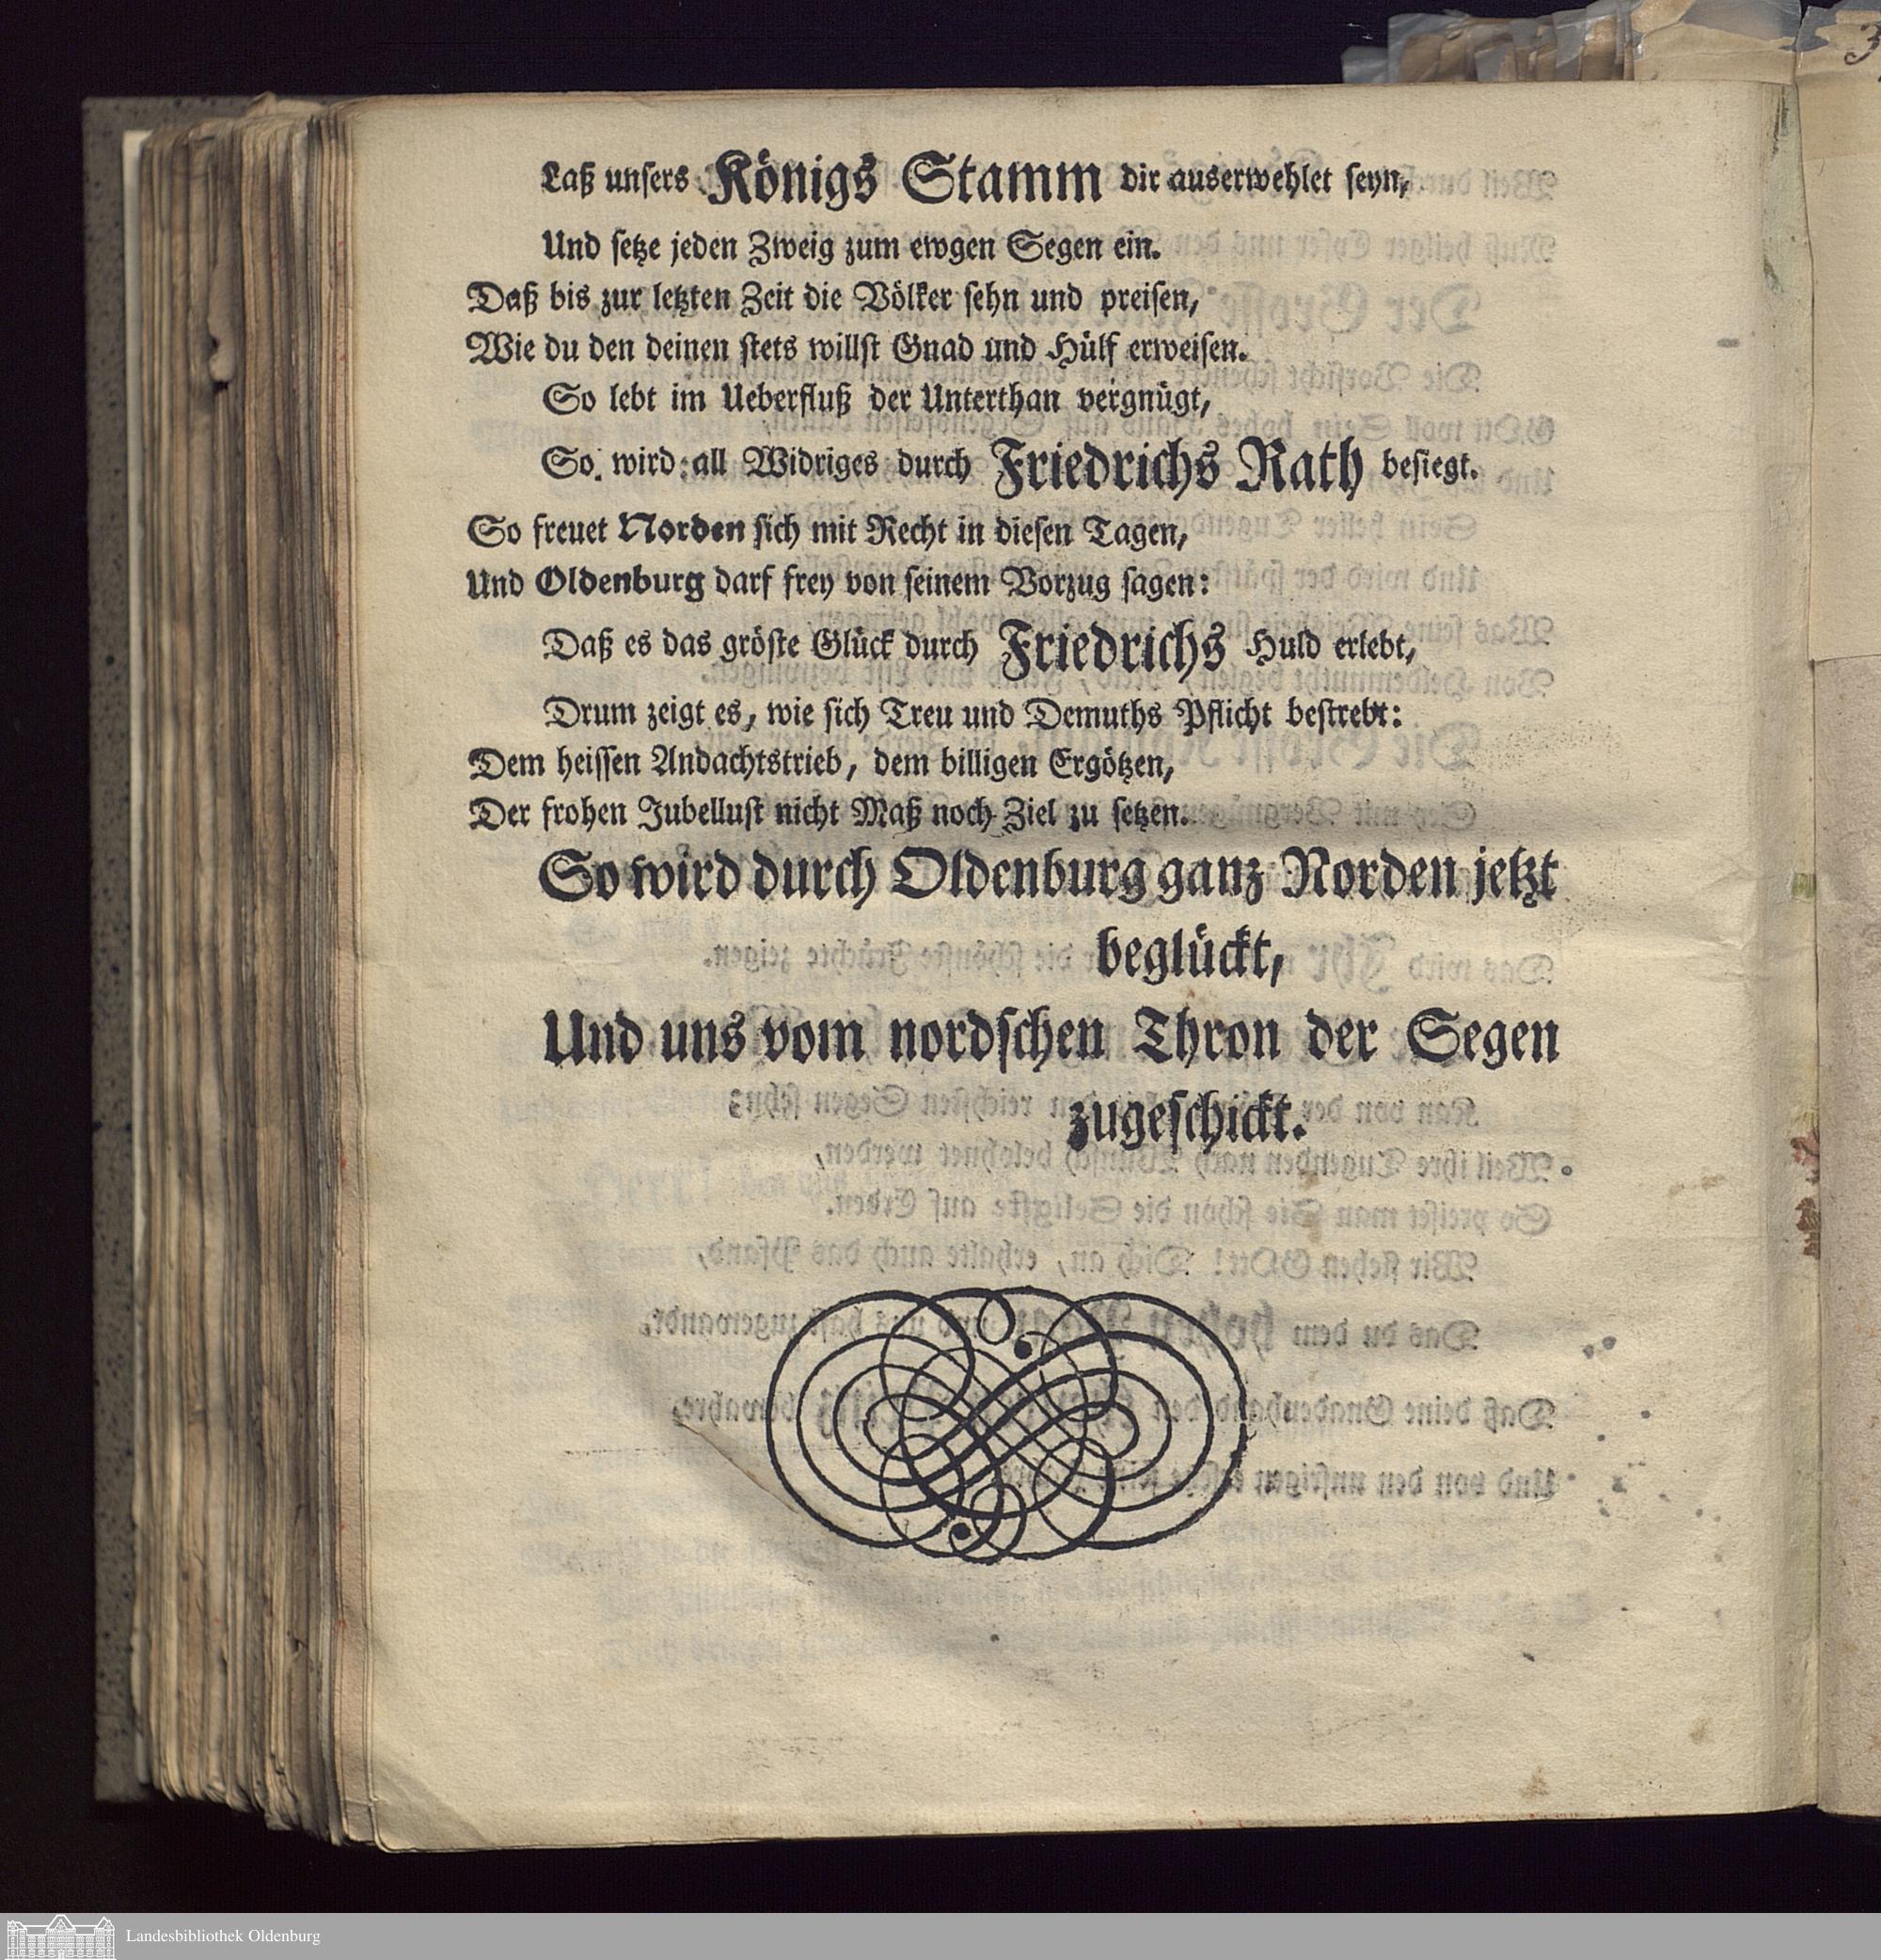 Laß unsers Königs Stamm dir auserwehlet seyn,
Und setze jeden Zweig zum ewgen Segen ein.
Daß bis zur letzten Zeit die Völker sehn und preisen,
Wie du den deinen stets willst Gnad und Hülf erweisen.
So lebt im Ueberfluß der Unterthan vergnügt,
So wird all Widriges durch Friedrichs Rath besiegt.
So freuet Norden sich mit Recht in diesen Tagen,
Und Oldenburg darf frey von seinem Vorzug sagen:
Daß es das gröste Glück durch Friedrichs Huld erlebt,
Drum zeigt es, wie sich Treu und Demuths Pflicht bestrebt:
Dem heissen Andachtstrieb, dem billigen Ergötzen,
Der frohen Jubellust nicht Maß noch Ziel zu setzen.
So wird durch Oldenburg ganz Norden jetzt
beglückt,
Und uns vom nordschen Thron der Segen
zugeschickt.
Landesbibliothek Oldenburg